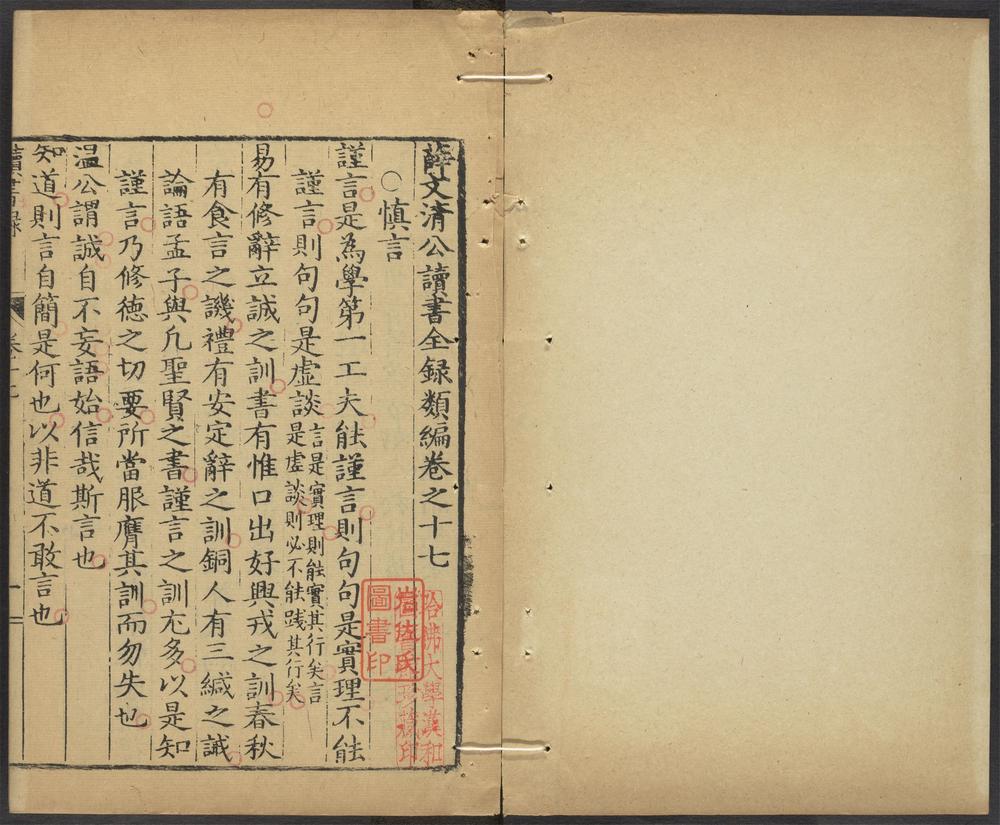 薛文清公讀書全録類編卷之十七
○慎言
謹言是為學第一工夫能謹言則句句是實理不能
謹言則句句是虛談言是實理則能實其行矣言
是虛談則必不能踐其行矣
易有修辭立誠之訓書有惟口出好興戎之訓春秋
有食言之譏禮有安定辭之訓銅人有三緘之誡
論語孟子與凡聖賢之書謹言之訓尤多以是知
謹言乃修德之切要所當服膺其訓而勿失也
温公謂誠自不妄語始信哉斯言也
知道則言自簡是何也以非道不敢言也
讀書録
卷十七
一
哈佛大學漢和
圖書印